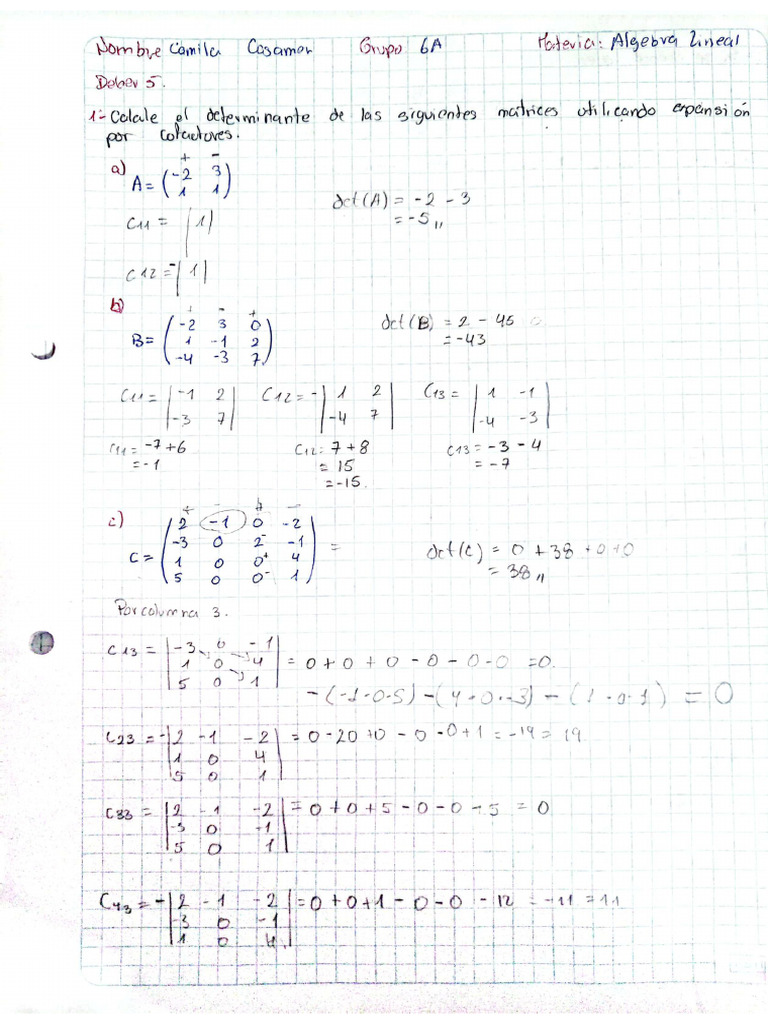 Nombre Camila Casamen Grupo 6A Materia: Algebra Lineal
Deber 5.
1.- Calcule el determinante de las siguientes matrices utilizando expansión
por cofactores.
a)
+ -
A = ( -2 3
1 1 )
det(A) = -2 - 3
= -5,,
C11 = |1|
C12 = -|1|
b)
+ - +
B = ( -2 3 0
1 -1 2
-4 -3 7 )
det(B) = 2 - 45 0
= -43
C11 = | -1 2
-3 7 |
C12 = - | 1 2
-4 7 |
C13 = | 1 -1
-4 -3 |
C11 = -7+6
= -1
C12 = 7+8
= 15
= -15.
C13 = -3 - 4
= -7
c)
+ - + -
C = ( 2 -1 0 -2
-3 0 2- -1
1 0 0+ 4
5 0 0- 1 ) =
det(C) = 0 + 38 + 0 + 0
= 38,,
Por columna 3.
C13 = | -3 0 -1
1 0 4
5 0 1 | = 0 + 0 + 0 - 0 - 0 - 0 = 0.
-(-1·0·5) - (4·0·-3) - (1·0·1) = 0
C23 = - | 2 -1 -2
1 0 4
5 0 1 | = 0 - 20 + 0 - 0 - 0 + 1 = -19 = 19
C33 = | 2 -1 -2
-3 0 -1
5 0 1 | = 0 + 0 + 5 - 0 - 0 - 5 = 0
C43 = - | 2 -1 -2
-3 0 -1
1 0 4 | = 0 + 0 + 1 - 0 - 0 - 12 = -11 = 11